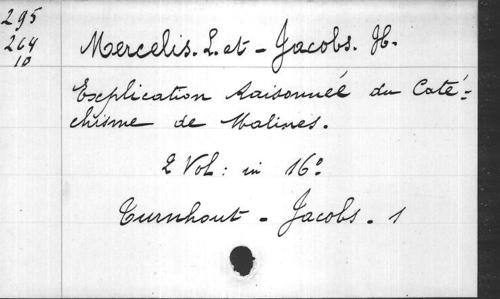 295
264
10
Mercelis. L. et - Jacobs. H.
Explication Raisonnée du Caté-
chisme de Malines.
2 Vol: in 16º
Turnhout - Jacobs. 1